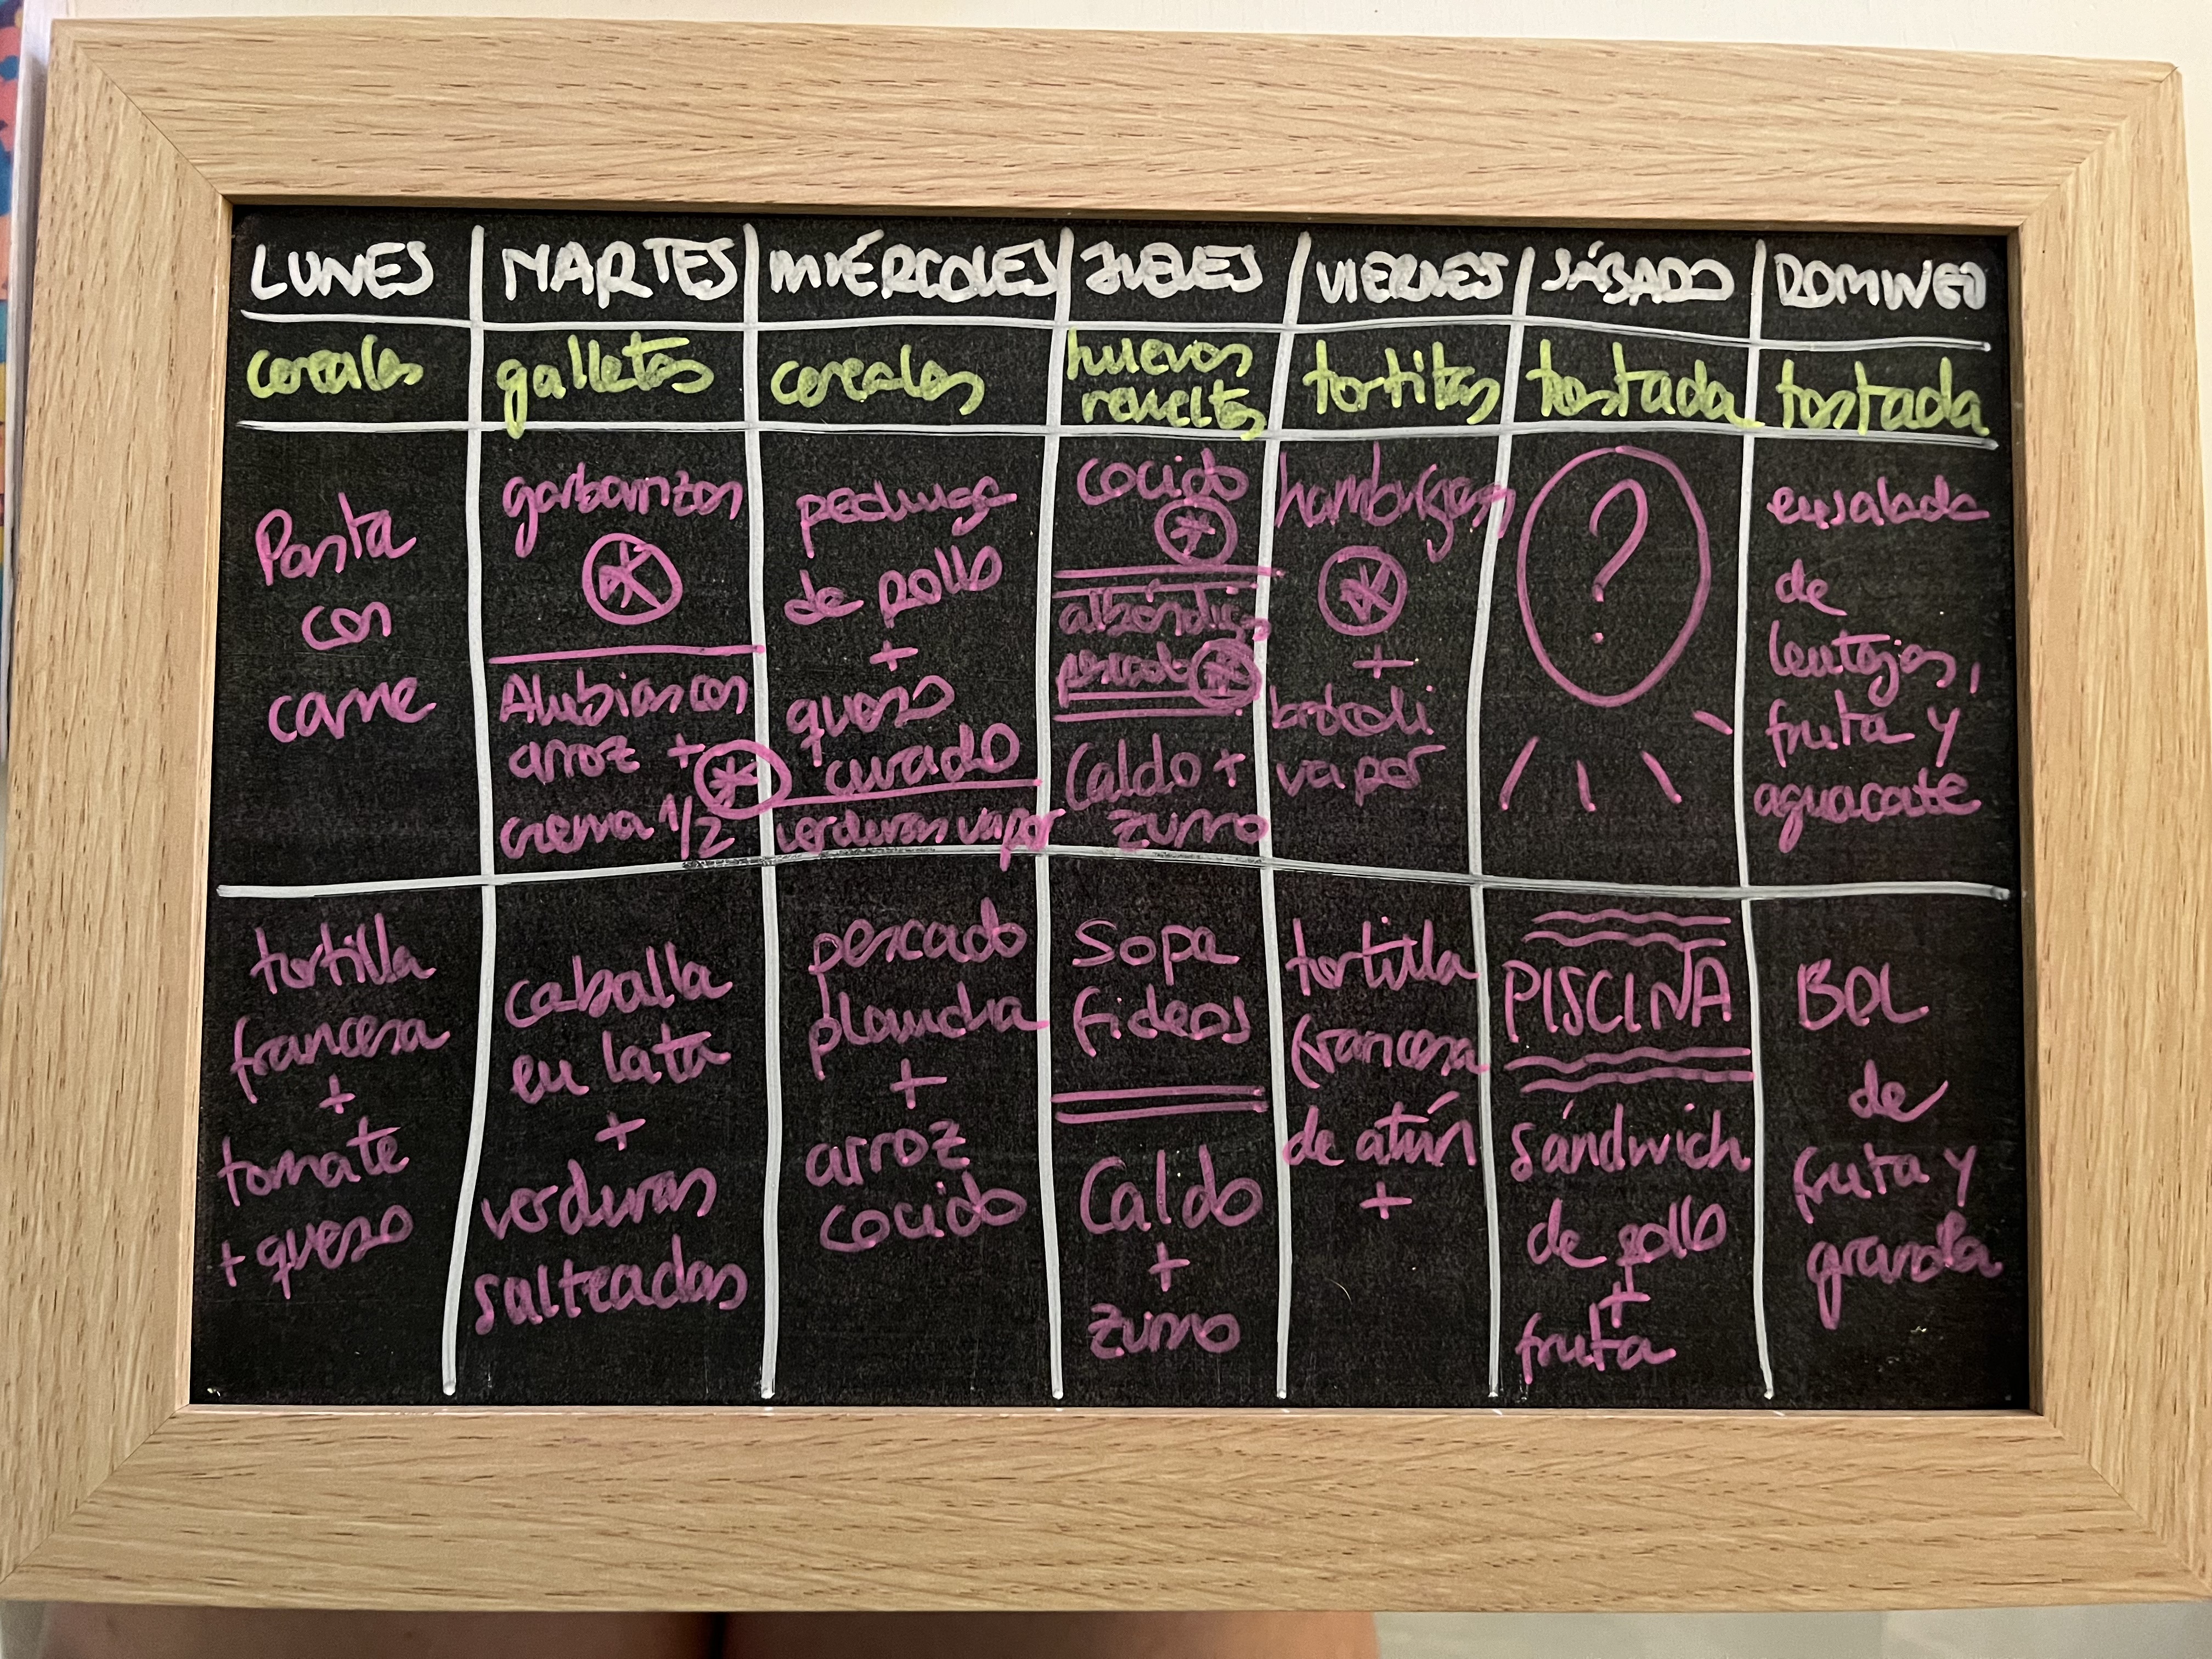 LUNES
MARTES
MIÉRCOLES
JUEVES
VIERNES
SÁBADO
DOMINGO
cereales
galletas
cereales
huevos
revueltos
tortitas
tostada
tostada
Pasta
con
carne
garbanzos
*
Alubias con
arroz +
*
crema 1/2
pechuga
de pollo
+
queso
curado
verduras vapor
cocido
*
albóndigas
pescado *
Caldo +
zumo
hamburguesa
*
+
brócoli
vapor
?
ensalada
de
lentejas,
fruta y
aguacate
tortilla
francesa
+
tomate
+ queso
caballa
en lata
+
verduras
salteadas
pescado
plancha
+
arroz
cocido
Sopa
fideos
Caldo
+
zumo
tortilla
francesa
de atún
+
PISCINA
sándwich
de pollo
+
fruta
BOL
de
fruta y
granola